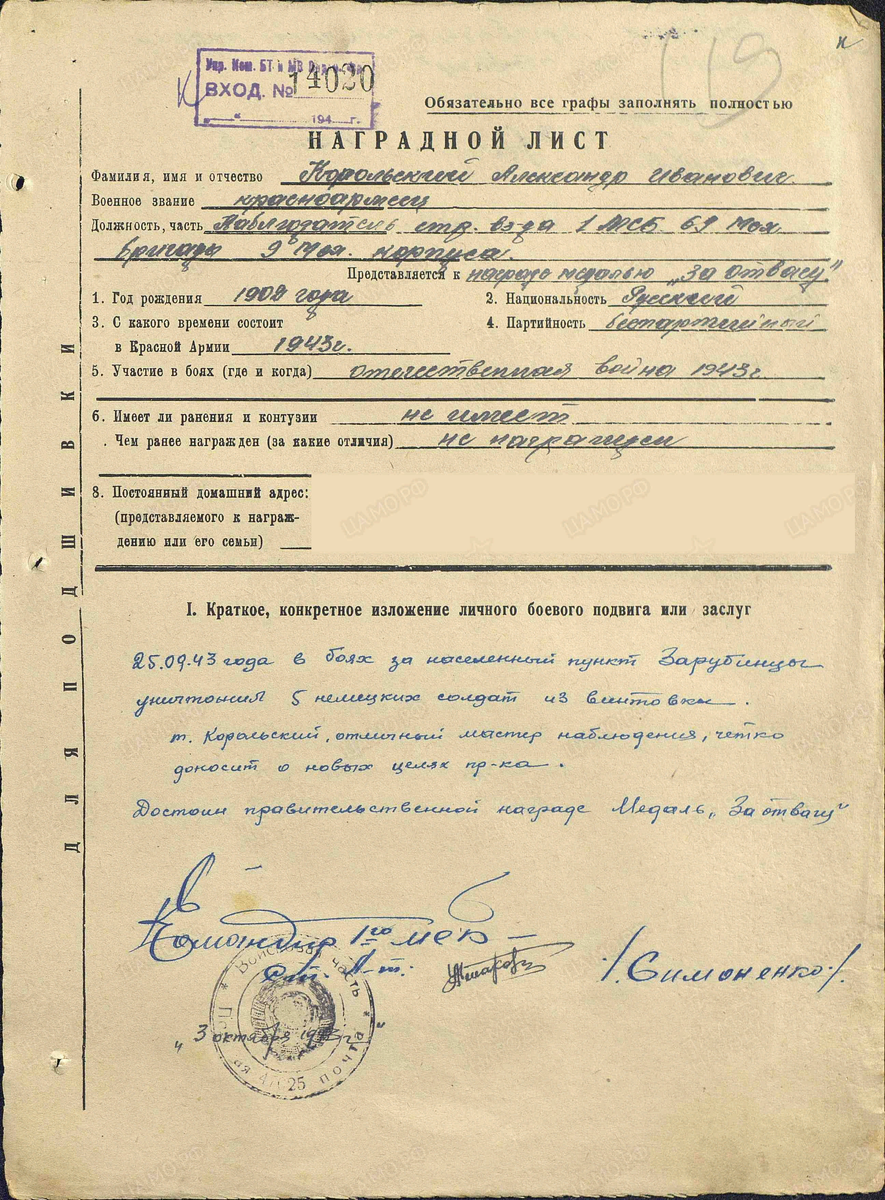 Упр. Ком. БТ и МВ
ВХОД. № 14020
194 г.
119
Обязательно все графы заполнять полностью
НАГРАДНОЙ ЛИСТ
Фамилия, имя и отчество Корольский Александр Иванович.
Военное звание красноармеец
Должность, часть Наблюдатель стр. взвода 1 МСБ 69 Мех
бригада 9 Мех. корпуса.
Представляется к награде медалью „За отвагу"
1. Год рождения 1908 года
2. Национальность Русский
3. С какого времени состоит
в Красной Армии 1943г.
4. Партийность беспартийный
5. Участие в боях (где и когда) отечественная война 1943г.
6. Имеет ли ранения и контузии не имеет
Чем ранее награжден (за какие отличия) не награжден
8. Постоянный домашний адрес:
(представляемого к награж-
дению или его семьи)
ДЛЯ ПОДШИВКИ
I. Краткое, конкретное изложение личного боевого подвига или заслуг
25.09.43 года в боях за населенный пункт Зарубинцы
уничтожил 5 немецких солдат из винтовки.
т. Корольский, отличный мастер наблюдения, чётко
доносит о новых целях пр-ка.
Достоин правительственной награде Медаль „За отвагу"
Командир 1го мсб –
ст. л-т. /.Симоненко./.
„3 октября 1943 г."
Войсковая часть
полевая почта
25
ЦАМО.РФ